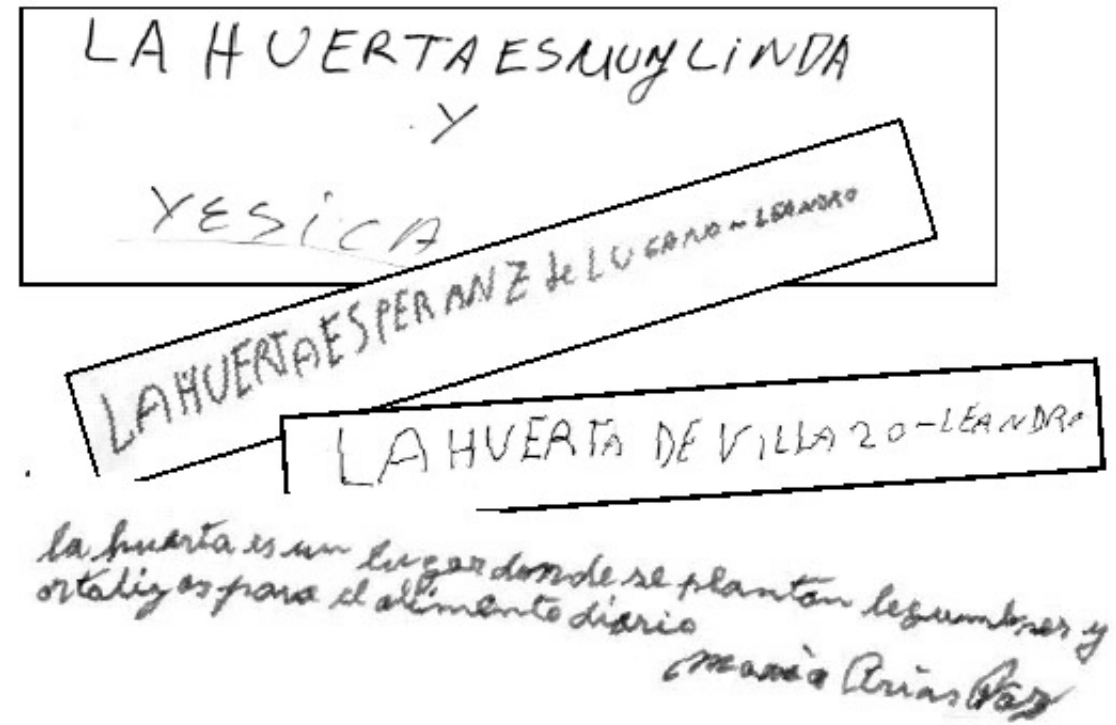 LA HUERTA ES MUY LiNDA
Y
YESiCA
LA HUERTA ESPERANZ de LUGANO - LEANDRO
LA HUERTA DE ViLLA 20 - LEANDRO
la huerta es un lugar donde se plantan legumbres y
ortalizas para el alimento diario
María Arias Paz